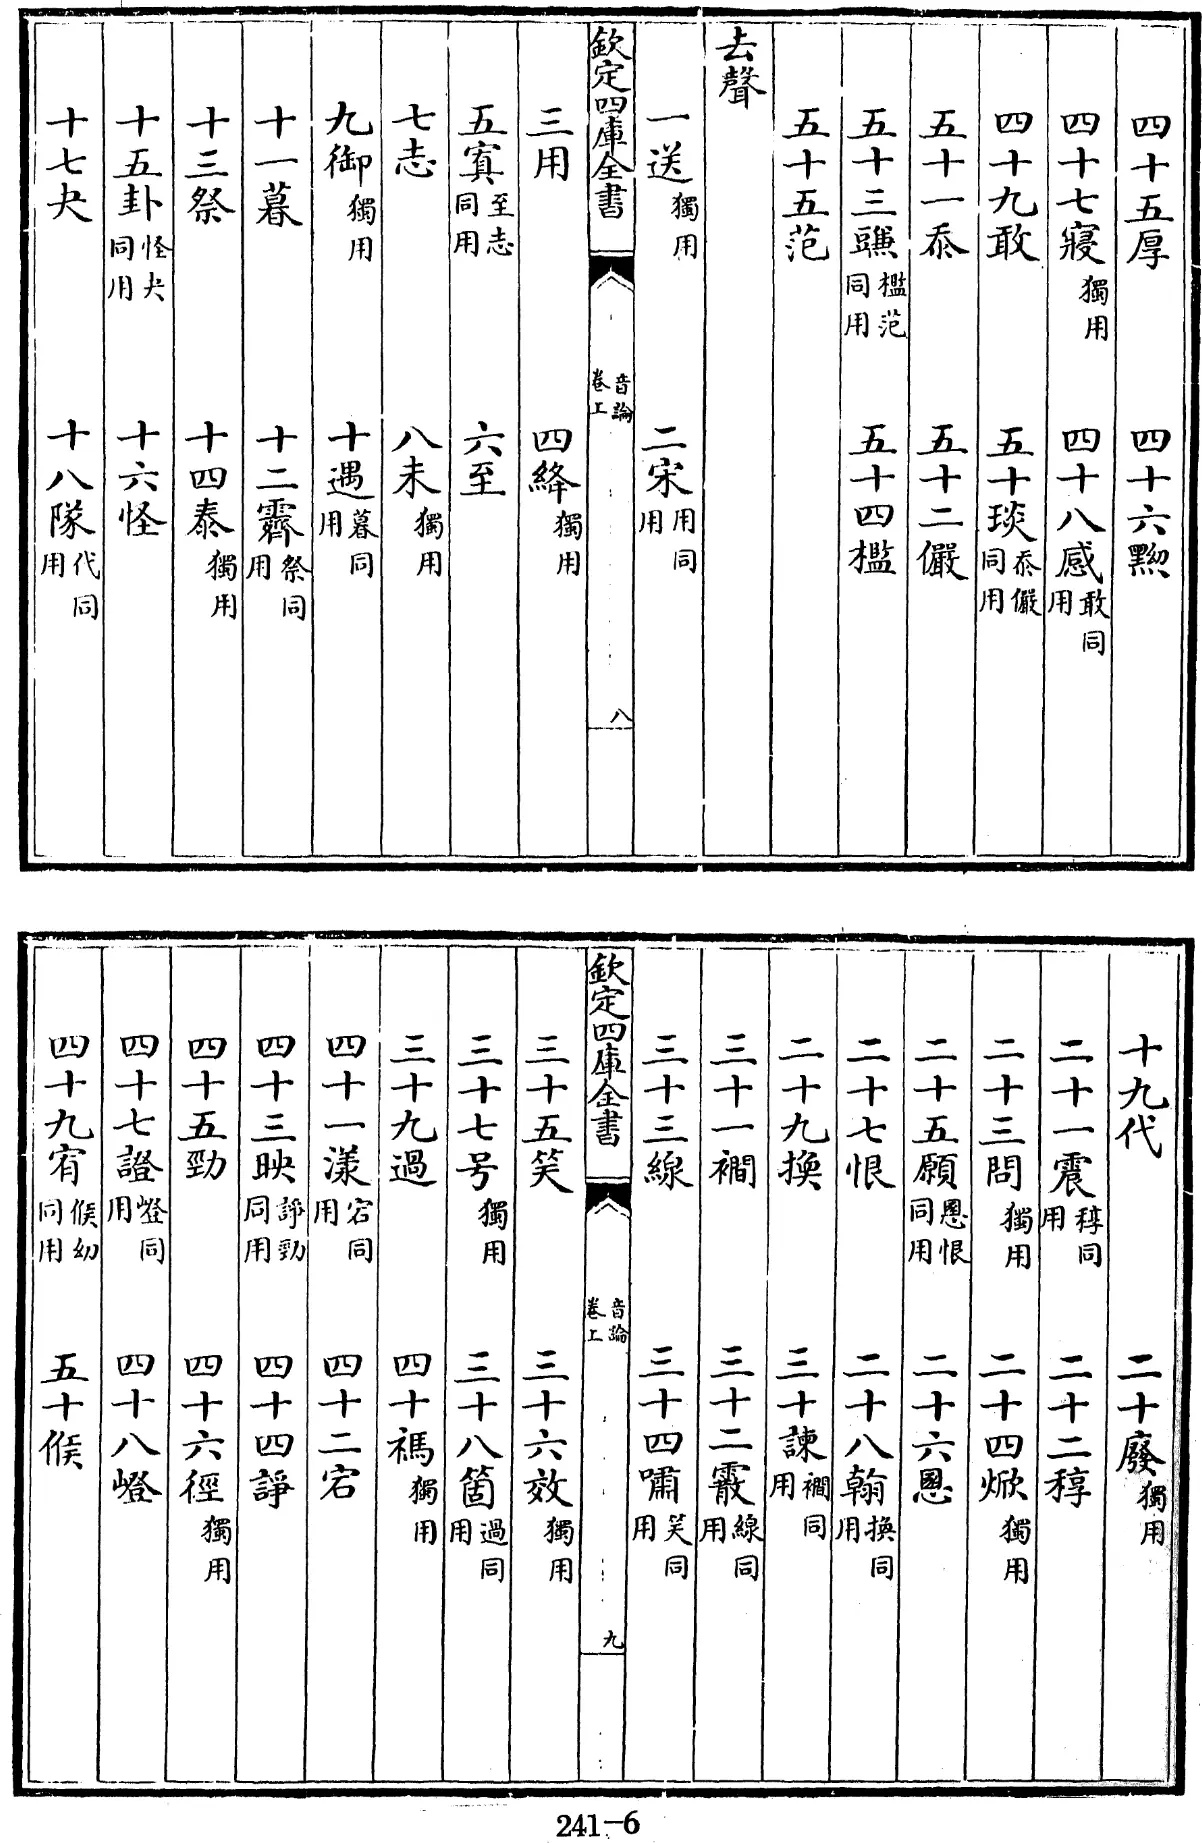 四十五厚 四十六黝
四十七寢獨用 四十八感敢同用
四十九敢 五十琰忝儼同用
五十一忝 五十二儼
五十三豏檻范同用 五十四檻
五十五范
去聲
一送獨用 二宋用同用
欽定四庫全書 音論卷上 八
三用 四絳獨用
五寘至志同用 六至
七志 八未獨用
九御獨用 十遇暮同用
十一暮 十二霽祭同用
十三祭 十四泰獨用
十五卦怪夬同用 十六怪
十七夬 十八隊代同用
十九代 二十廢獨用
二十一震稕同用 二十二稕
二十三問獨用 二十四焮獨用
二十五願慁恨同用 二十六慁
二十七恨 二十八翰換同用
二十九換 三十諫襉同用
三十一襉 三十二霰線同用
三十三線 三十四嘯笑同用
欽定四庫全書 音論卷上 九
三十五笑 三十六效獨用
三十七号獨用 三十八箇過同用
三十九過 四十禡獨用
四十一漾宕同用 四十二宕
四十三映諍勁同用 四十四諍
四十五勁 四十六徑獨用
四十七證嶝同用 四十八嶝
四十九宥候幼同用 五十候
241-6